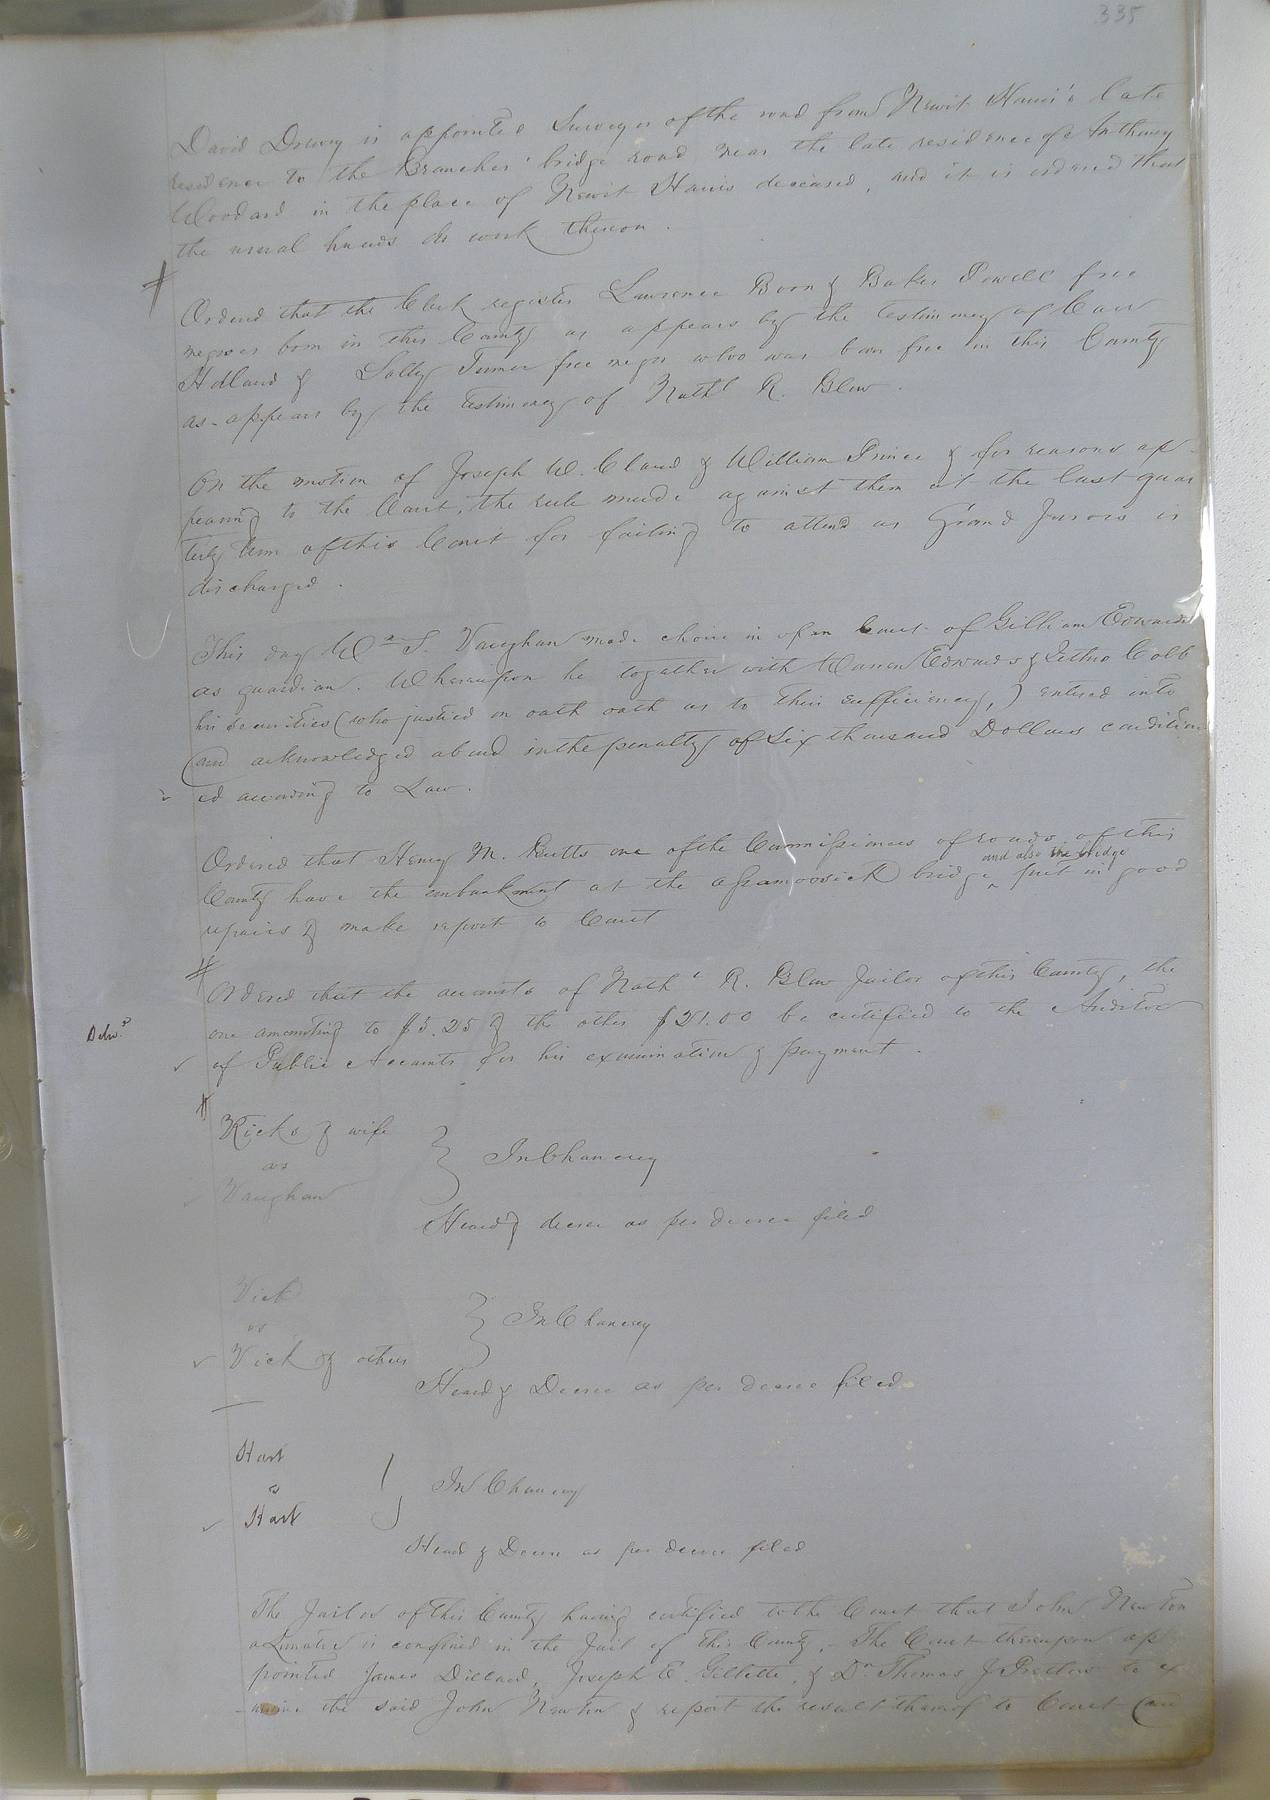 335
David Drewry is appointed Surveyor of the road from Newit Harris's late
residence to the Branches' bridge road near the late residence of Anthony
Woodard in the place of Newit Harris deceased, and it is ordered that
the usual hands do work thereon.
Ordered that the Clerk register Lawrence Boon & Baker Powell free
negroes born in this County as appears by the testimony of
Holland & Sally Turner free negro who was born free in this County
as appears by the testimony of Nathl R. Blow.
On the motion of Joseph W. Claud & William Prince & for reasons ap-
pearing to the Court, the rule made against them at the last quar
terly term of this Court for failing to attend as Grand Jurors is
discharged.
This day Wm S. Vaughan made choice in open Court of Gilliam Edwards
as guardian. Whereupon he together with Edwards & Cobb
his securities (who justied on oath oath as to their sufficiency,) entered into
and acknowledged a bond in the penalty of Six thousand Dollars condition
ed according to Law.
Ordered that Henry M. Butts one of the Commissioners of roads of this
and also the bridge
County have the embankment at the Assamoosick bridge ^ put in good
repairs & make report to Court
Ordered that the accounts of Nathl R. Blow Jailor of this County, the
one amounting to $5.25 & the other $21.00 be certified to the Auditor
of Public Accounts for his examination & payment.
Ricks & wife
vs
Vaughan
} In Chancery
Heard & decree as per decree filed
Vick
vs
Vick & others
} In Chancery
Heard & Decree as per decree filed
Hart
vs
Hart
} In Chancery
Heard & Decree as per decree filed
The Jailor of this County having certified to the Court that John Newton
a Lunatic is confined in the Jail of this County, - The Court thereupon ap
pointed James Dillard, Joseph E. Gillette, & Dr Thomas J Pretlow to ex
-amine the said John Newton & report the result thereof to Court and